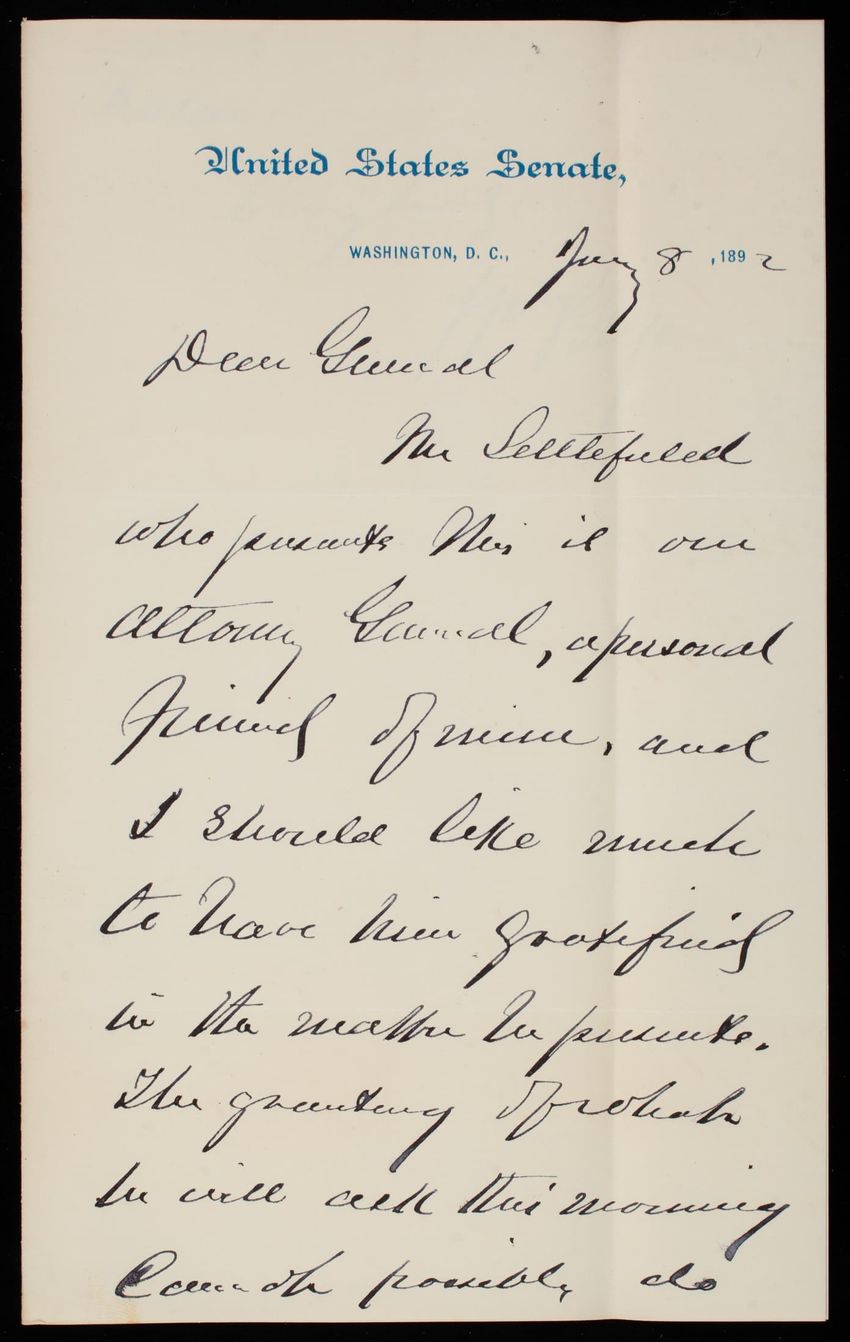 United States Senate,
WASHINGTON, D. C., Jany 8, 1892
Dear General
Mr Littlefield
who presents this is our
Attorney General, a personal
friend of mine, and
I should like much
to have him gratified
in the matter he presents.
The granting of what
he will ask this morning
cannot possibly do